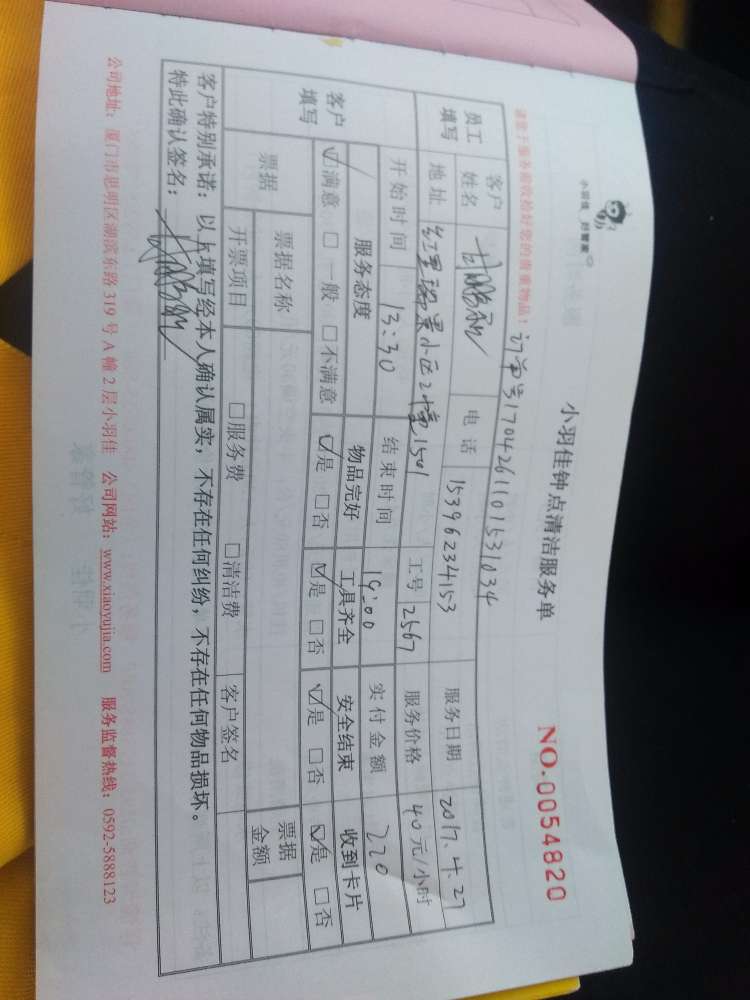 小羽佳 好管家
小羽佳钟点清洁服务单
NO.0054820
请您于服务前收拾好您的贵重物品!
订单号1704261101531034
员工填写
客户姓名
电话 15396234153
服务日期 2017.4.27
地址 红星瑞景小区2幢1501
工号 2567
服务价格 40元/小时
开始时间 13:30
结束时间 19:00
实付金额 220
客户填写
服务态度 物品完好 工具齐全 安全结束 收到卡片
☑满意 □一般 □不满意 ☑是 □否 ☑是 □否 ☑是 □否 ☑是 □否
票据 票据名称 票据金额
开票项目 □服务费 □清洁费 客户签名
客户特别承诺: 以上填写经本人确认属实,不存在任何纠纷,不存在任何物品损坏。
特此确认签名:
公司地址: 厦门市思明区湖滨东路 319 号 A 幢 2 层小羽佳 公司网站: www.xiaoyujia.com 服务监督热线: 0592-5888123